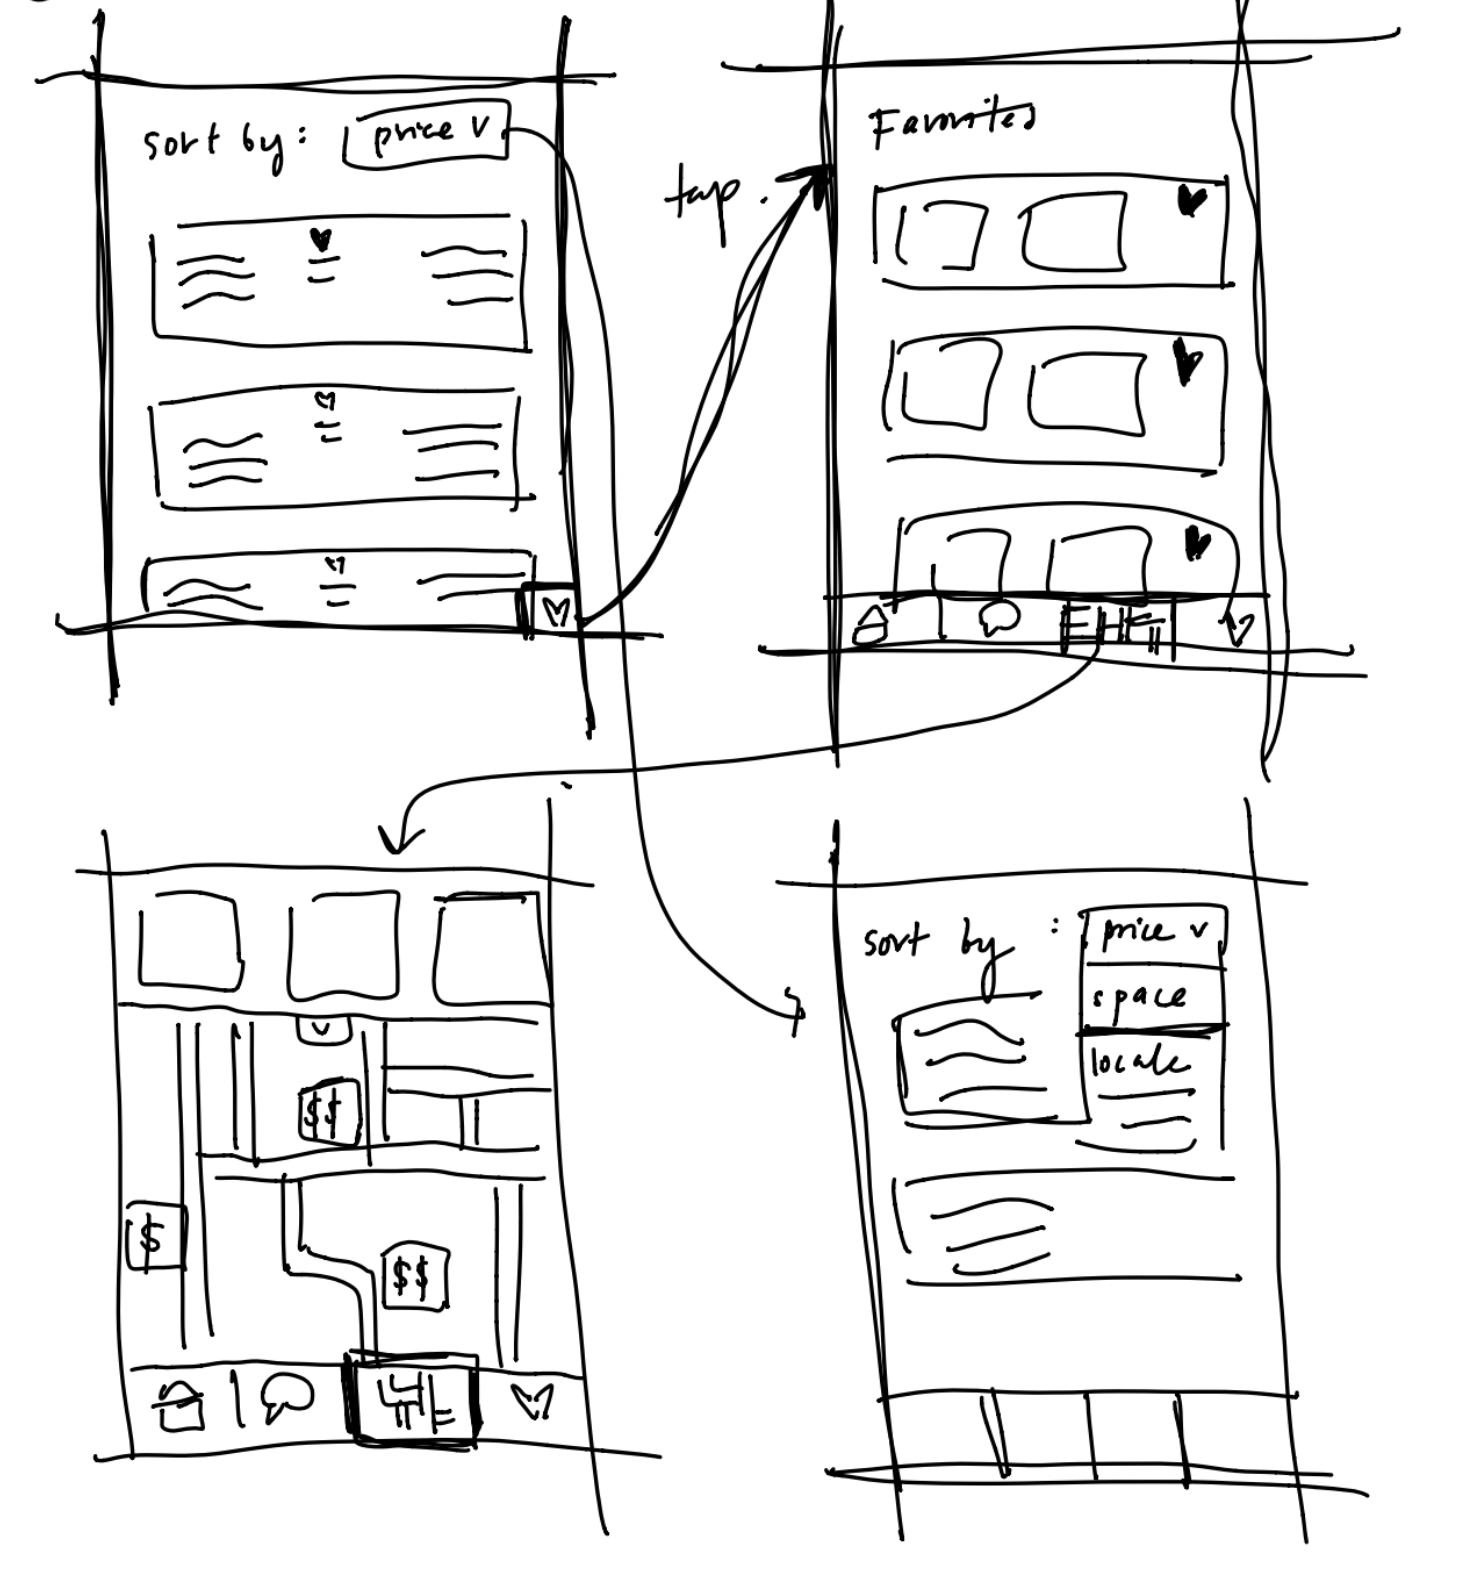 sort by: price v
tap.
Favorites
sort by : price v
space
locale
$$
$
$$